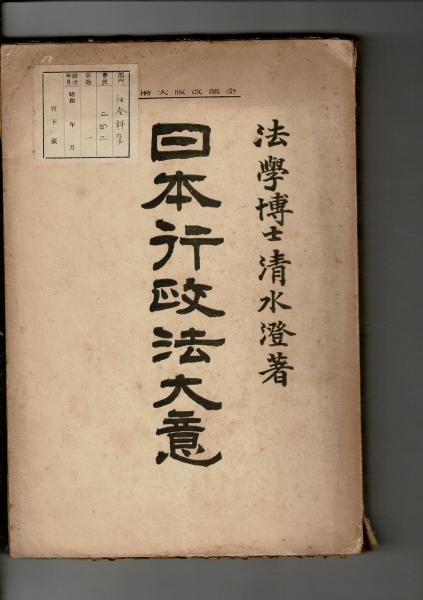 全部改版大増
法學博士清水澄著
日本行政法大意
部門 社會科学
番號 二四二
册數 一
昭和 年 月
竹下